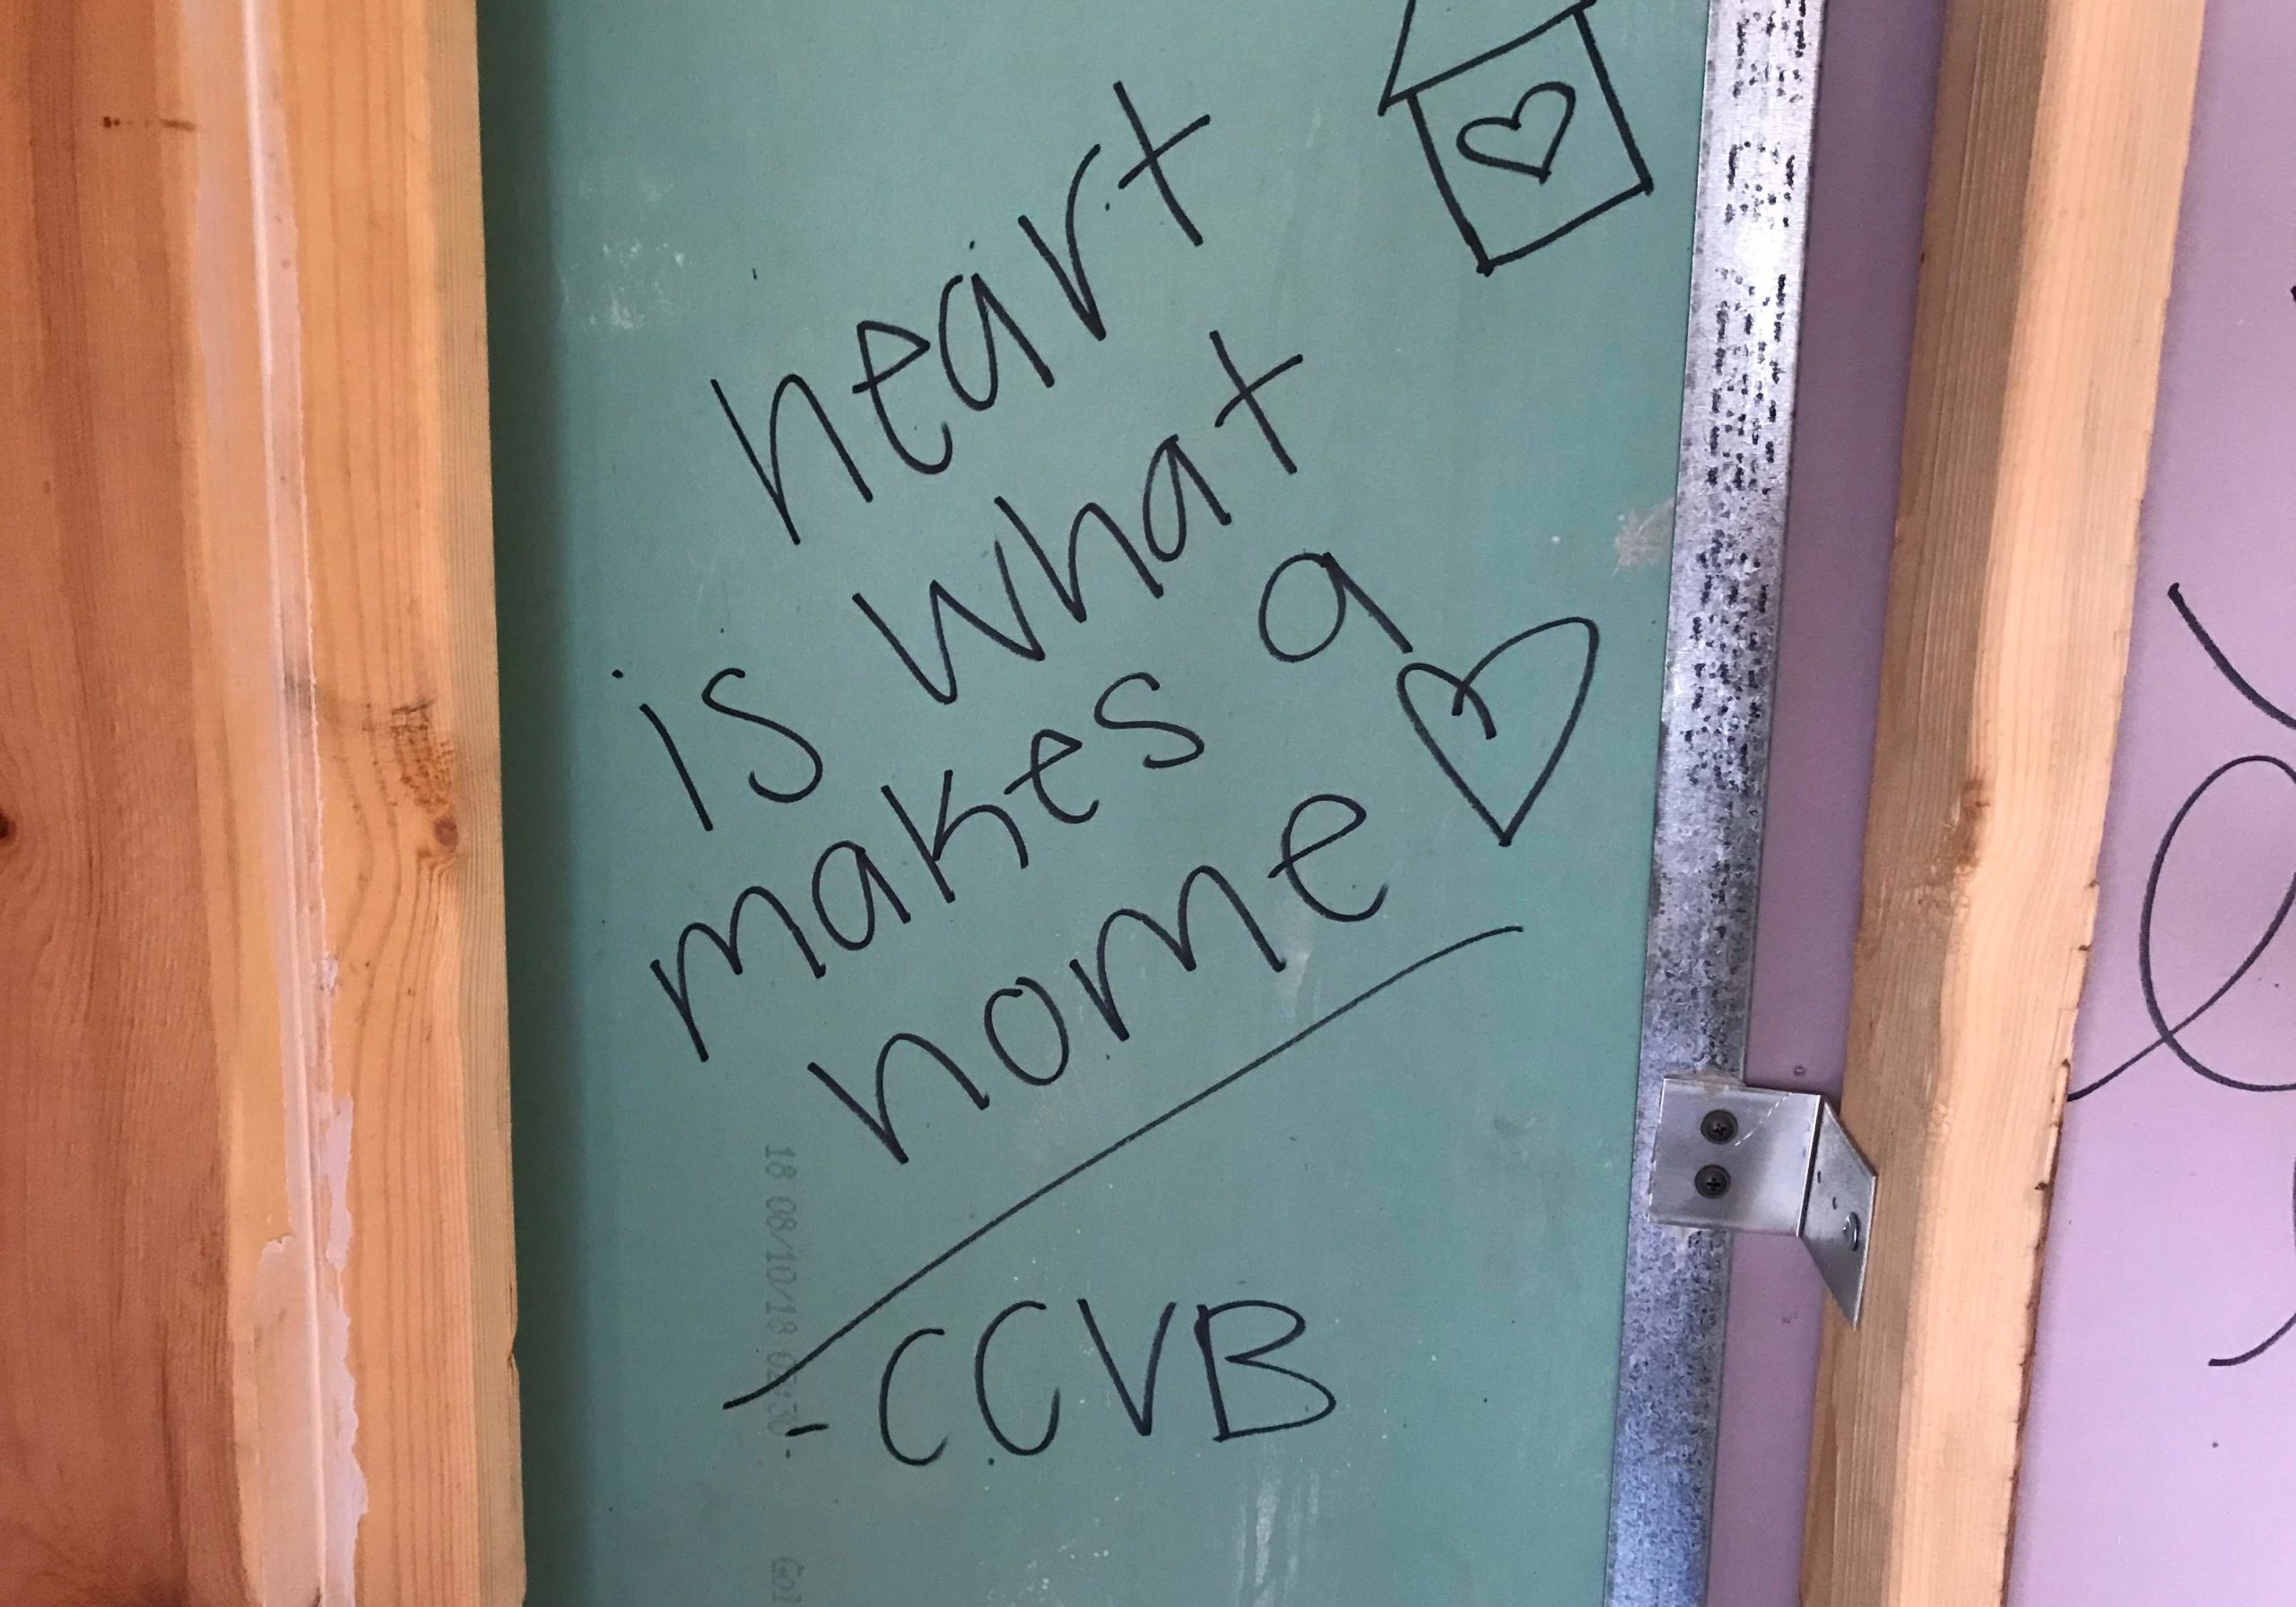 heart
is what
makes a
home
-CCVB
18 08/10/18